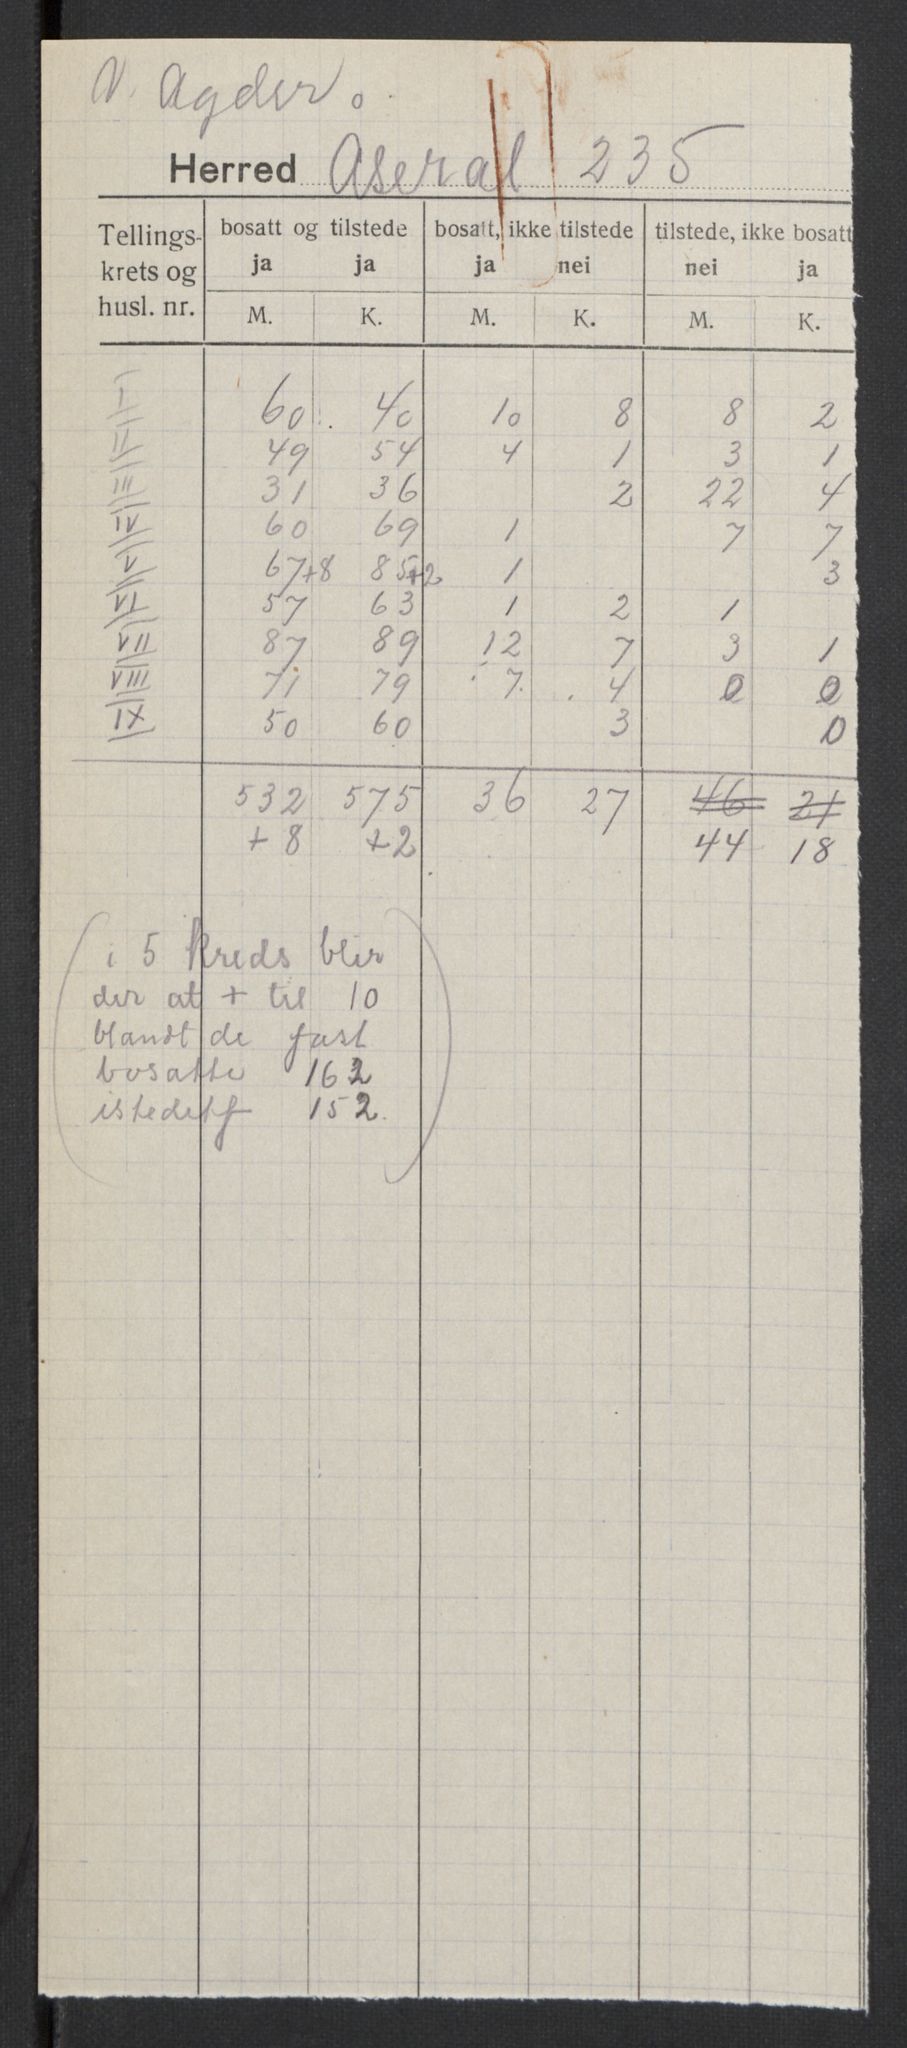 V. Agder.
Herred Aseral 235
Tellings- bosatt og tilstede bosatt, ikke tilstede tilstede, ikke bosatt
krets og ja ja ja nei nei ja
husl. nr. M. K. M. K. M. K.
I 60 40 10 8 8 2
II 49 54 4 1 3 1
III 31 36 2 22 4
IV 60 69 1 7 7
V 67+8 85+2 1 3
VI 57 63 1 2 1
VII 87 89 12 7 3 1
VIII 71 79 7 4 0 0
IX 50 60 3 0
532 575 36 27 46 21
+8 +2 44 18
i 5 kreds blir
der at + til 10
blandt de fast
bosatte 162
istedetf 152.